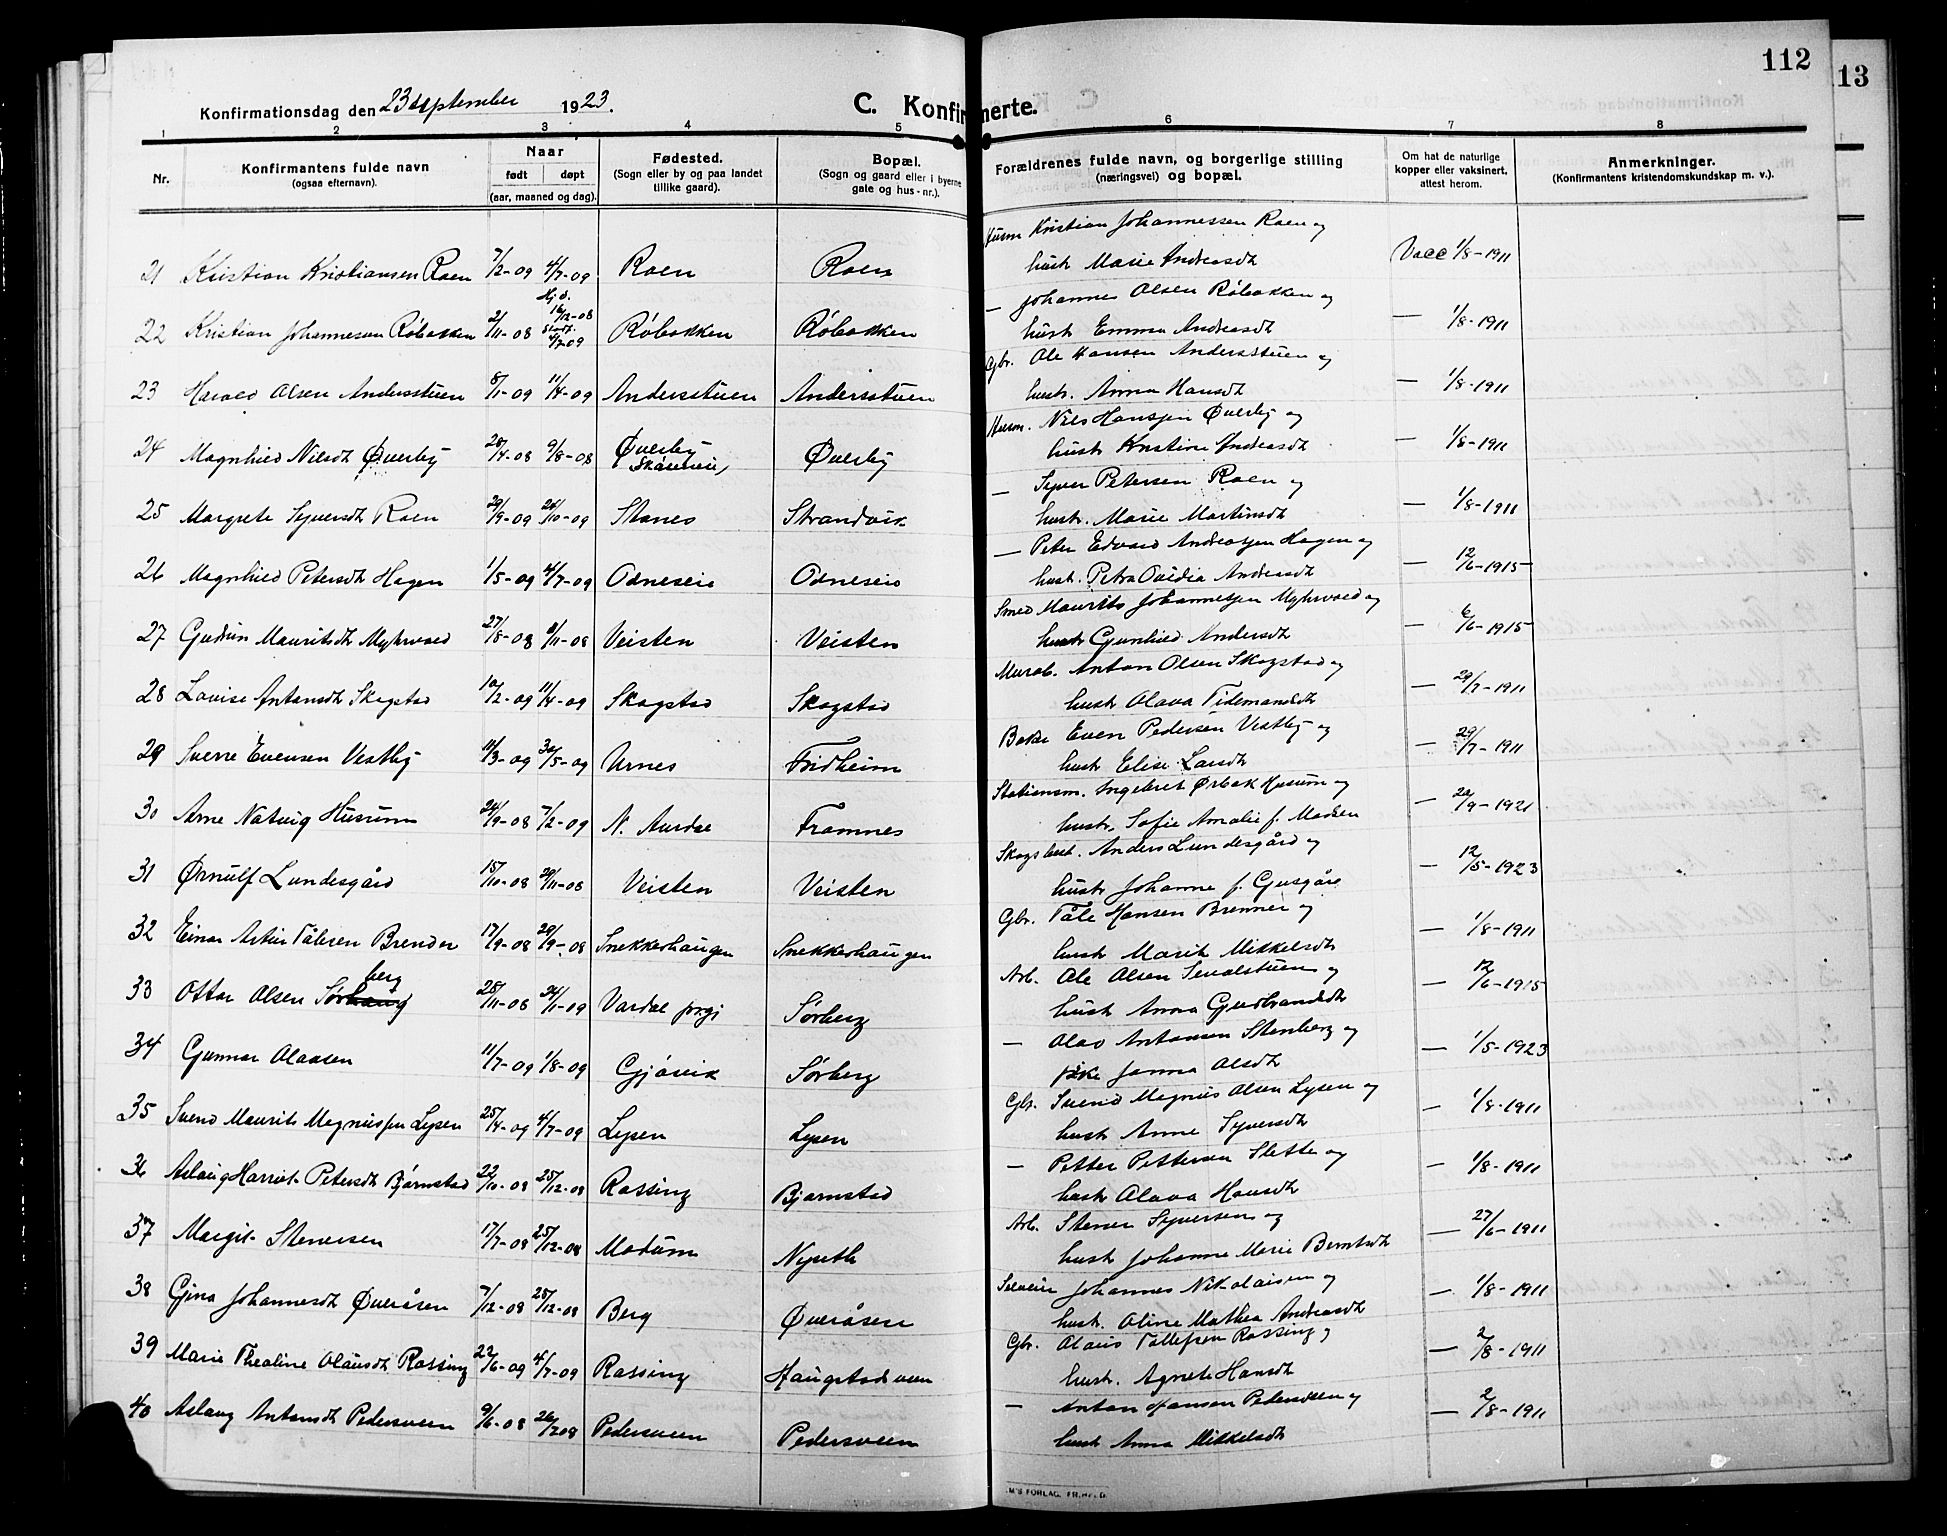 112
13
Konfirmationsdag den 23 september 1923.
C. Konfirmerte.
1 2 3 4 5 6 7 8
Nr. Konfirmantens fulde navn (ogsaa efternavn). Naar født døpt (aar, maaned og dag). Fødested. (Sogn eller by og paa landet tillike gaard). Bopæl. (Sogn og gaard eller i byerne gate og hus-nr.). Forældrenes fulde navn, og borgerlige stilling (næringsvei) og bopæl. Om hat de naturlige kopper eller vaksinert, attest herom. Anmerkninger. (Konfirmantens kristendomskundskap m. v.).
Husm Kristian Johannessen Roen og
21 Kristian Kristiansen Roen 7/2-09 4/7-09 Roen Roen hustr Marie Andreasdt Vacc 1/8-1911
— Johannes Olsen Røbakken og
22 Kristian Johannesen Røbakken 2/11-08 Hj.d. 16/12-08 stadf. 4/7-09 Røbakken Røbakken hustr Emma Andreasdt — 1/8-1911
Gbr. Ole Hansen Andersstuen og
23 Harald Olsen Andersstuen 8/1-09 11/4-09 Andersstuen Andersstuen hustr. Anna Hansdt — 1/8-1911
Husm. Nils Hansen Øverby og
24 Magnhild Nilsdt Øverby 28/4-08 9/8-08 Øverby Øverby hustr Kristine Andreasdt — 1/8-1911
— Syver Petersen Roen og
25 Margrete Syversdt Roen 29/9-09 24/10-09 Stanes Strandvik hustr. Marie Martinsdt — 1/8-1911
— Peter Edvard Andreassen Hagen og
26 Magnhild Petersdt Hagen 1/5-09 4/7-09 Odneseie Odneseie hustr. Petra Ovidia Andreasdt — 12/6-1915
Smed Maurits Johannessen Myhrvold og
27 Gudrun Mauritsdt Myhrvold 27/8-08 8/11-08 Veisten Veisten hustr Gunhild Andersdt — 6/6-1915
Murarb. Anton Olsen Skogstad og
28 Lovise Antonsdt Skogstad 10/2-09 11/4-09 Skogstad Skogstad hustr Olava Tidemandsdt — 29/7-1911
Baker Even Pedersen Vestby og
29 Sverre Evensen Vestby 11/3-09 30/5-09 Urnes Fridheim hustr Elise Larsdt — 29/7-1911
Stationsm. Ingebret Ørbek Husum og
30 Arne Natvig Husum 24/9-08 7/2-09 N. Aurdal Framnes hustr, Sofie Amalie f. Madsen — 20/9-1921
Skogsbest. Anders Lundesgård og
31 Ørnulf Lundesgård 15/10-08 29/11-08 Veisten Veisten hustr Johanne f. — 12/5-1923
Gbr. Tåle Hansen Brenner og
32 Einar Artur Tålesen Brender 17/9-08 20/9-08 Snekkerhaugen Snekkerhaugen hustr Marit Mikkelsdt — 1/8-1911
Arb. Ole Olsen og
33 Ottar Olsen Sørberg 28/11-08 24/1-09 Vardal prgj Sørberg hustr Anna Gudbrandsdt — 12/6-1915
— Olav Antonsen Stenberg og
34 Gunnar Olavsen 11/7-09 1/8-09 Gjøvik Sørberg pike Janna Olsdt — 1/5-1923
Gbr. Svend Magnus Olsen Lysen og
35 Svend Maurits Magnussen Lysen 25/4-09 4/7-09 Lysen Lysen hustr Anne Syversdt — 1/8-1911
— Petter Pettersen Slette og
36 Aslaug Harriet Petersdt Bjørnstad 22/10-08 25/12-08 Rossing Bjørnstad hustr Olava Hansdt — 1/8-1911
Arb. Stener Syversen og
37 Margit Stenersen 17/7-08 25/12-08 Modum Nyseth hustr Johanne Marie Berntsdt — 27/6-1911
Selveier Johannes Nikolaisen og
38 Gina Johannesdt Øveråsen 7/12-08 25/12-08 Berg Øveråsen hustr. Oline Mathea Andreasdt — 1/8-1911
Gbr. Olaus Tollefsen Rossing og
39 Marie Thealine Olausdt Rossing 22/6-09 4/7-09 Rossing Haugstadsveen hustr. Agnete Hansdt — 2/8-1911
— Anton Hansen Pedersveen og
40 Aslaug Antonsdt Pedersveen 9/6-08 26/7 08 Pedersveen Pedersveen hustr Anna Mikkelsdt — 2/8-1911
M'S FORLAG, FR.HALD.